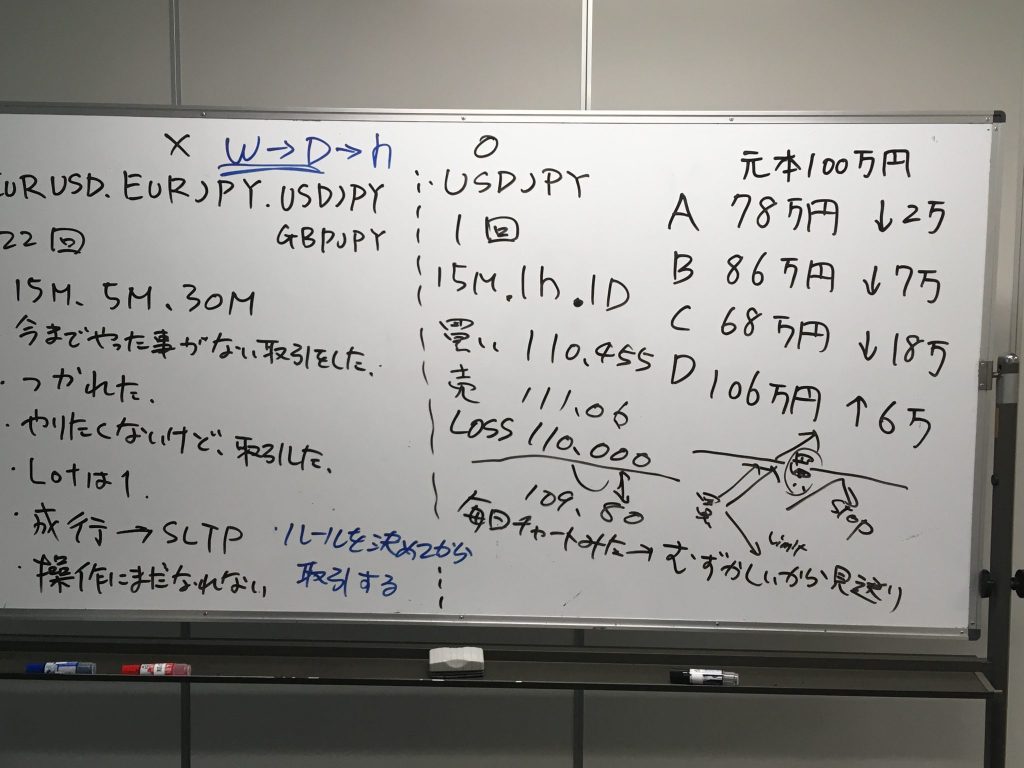 × W→D→h
EURUSD. EURJPY. USDJPY
GBPJPY
22回
15M、5M、30M
今までやった事がない取引をした.
・つかれた.
・やりたくないけど、取引した.
・Lotは1.
・成行→SLTP
・操作にまだなれない
・ルールを決めてから
取引する
○
USDJPY
1回
15M.1h.1D
買い 110.455
売 111.06
Loss 110.000
109.80
毎回チャートみた→むずかしいから見送り
元本100万円
A 78万円 ↓2万
B 86万円 ↓7万
C 68万円 ↓18万
D 106万円 ↑6万
買
Limit
Stop